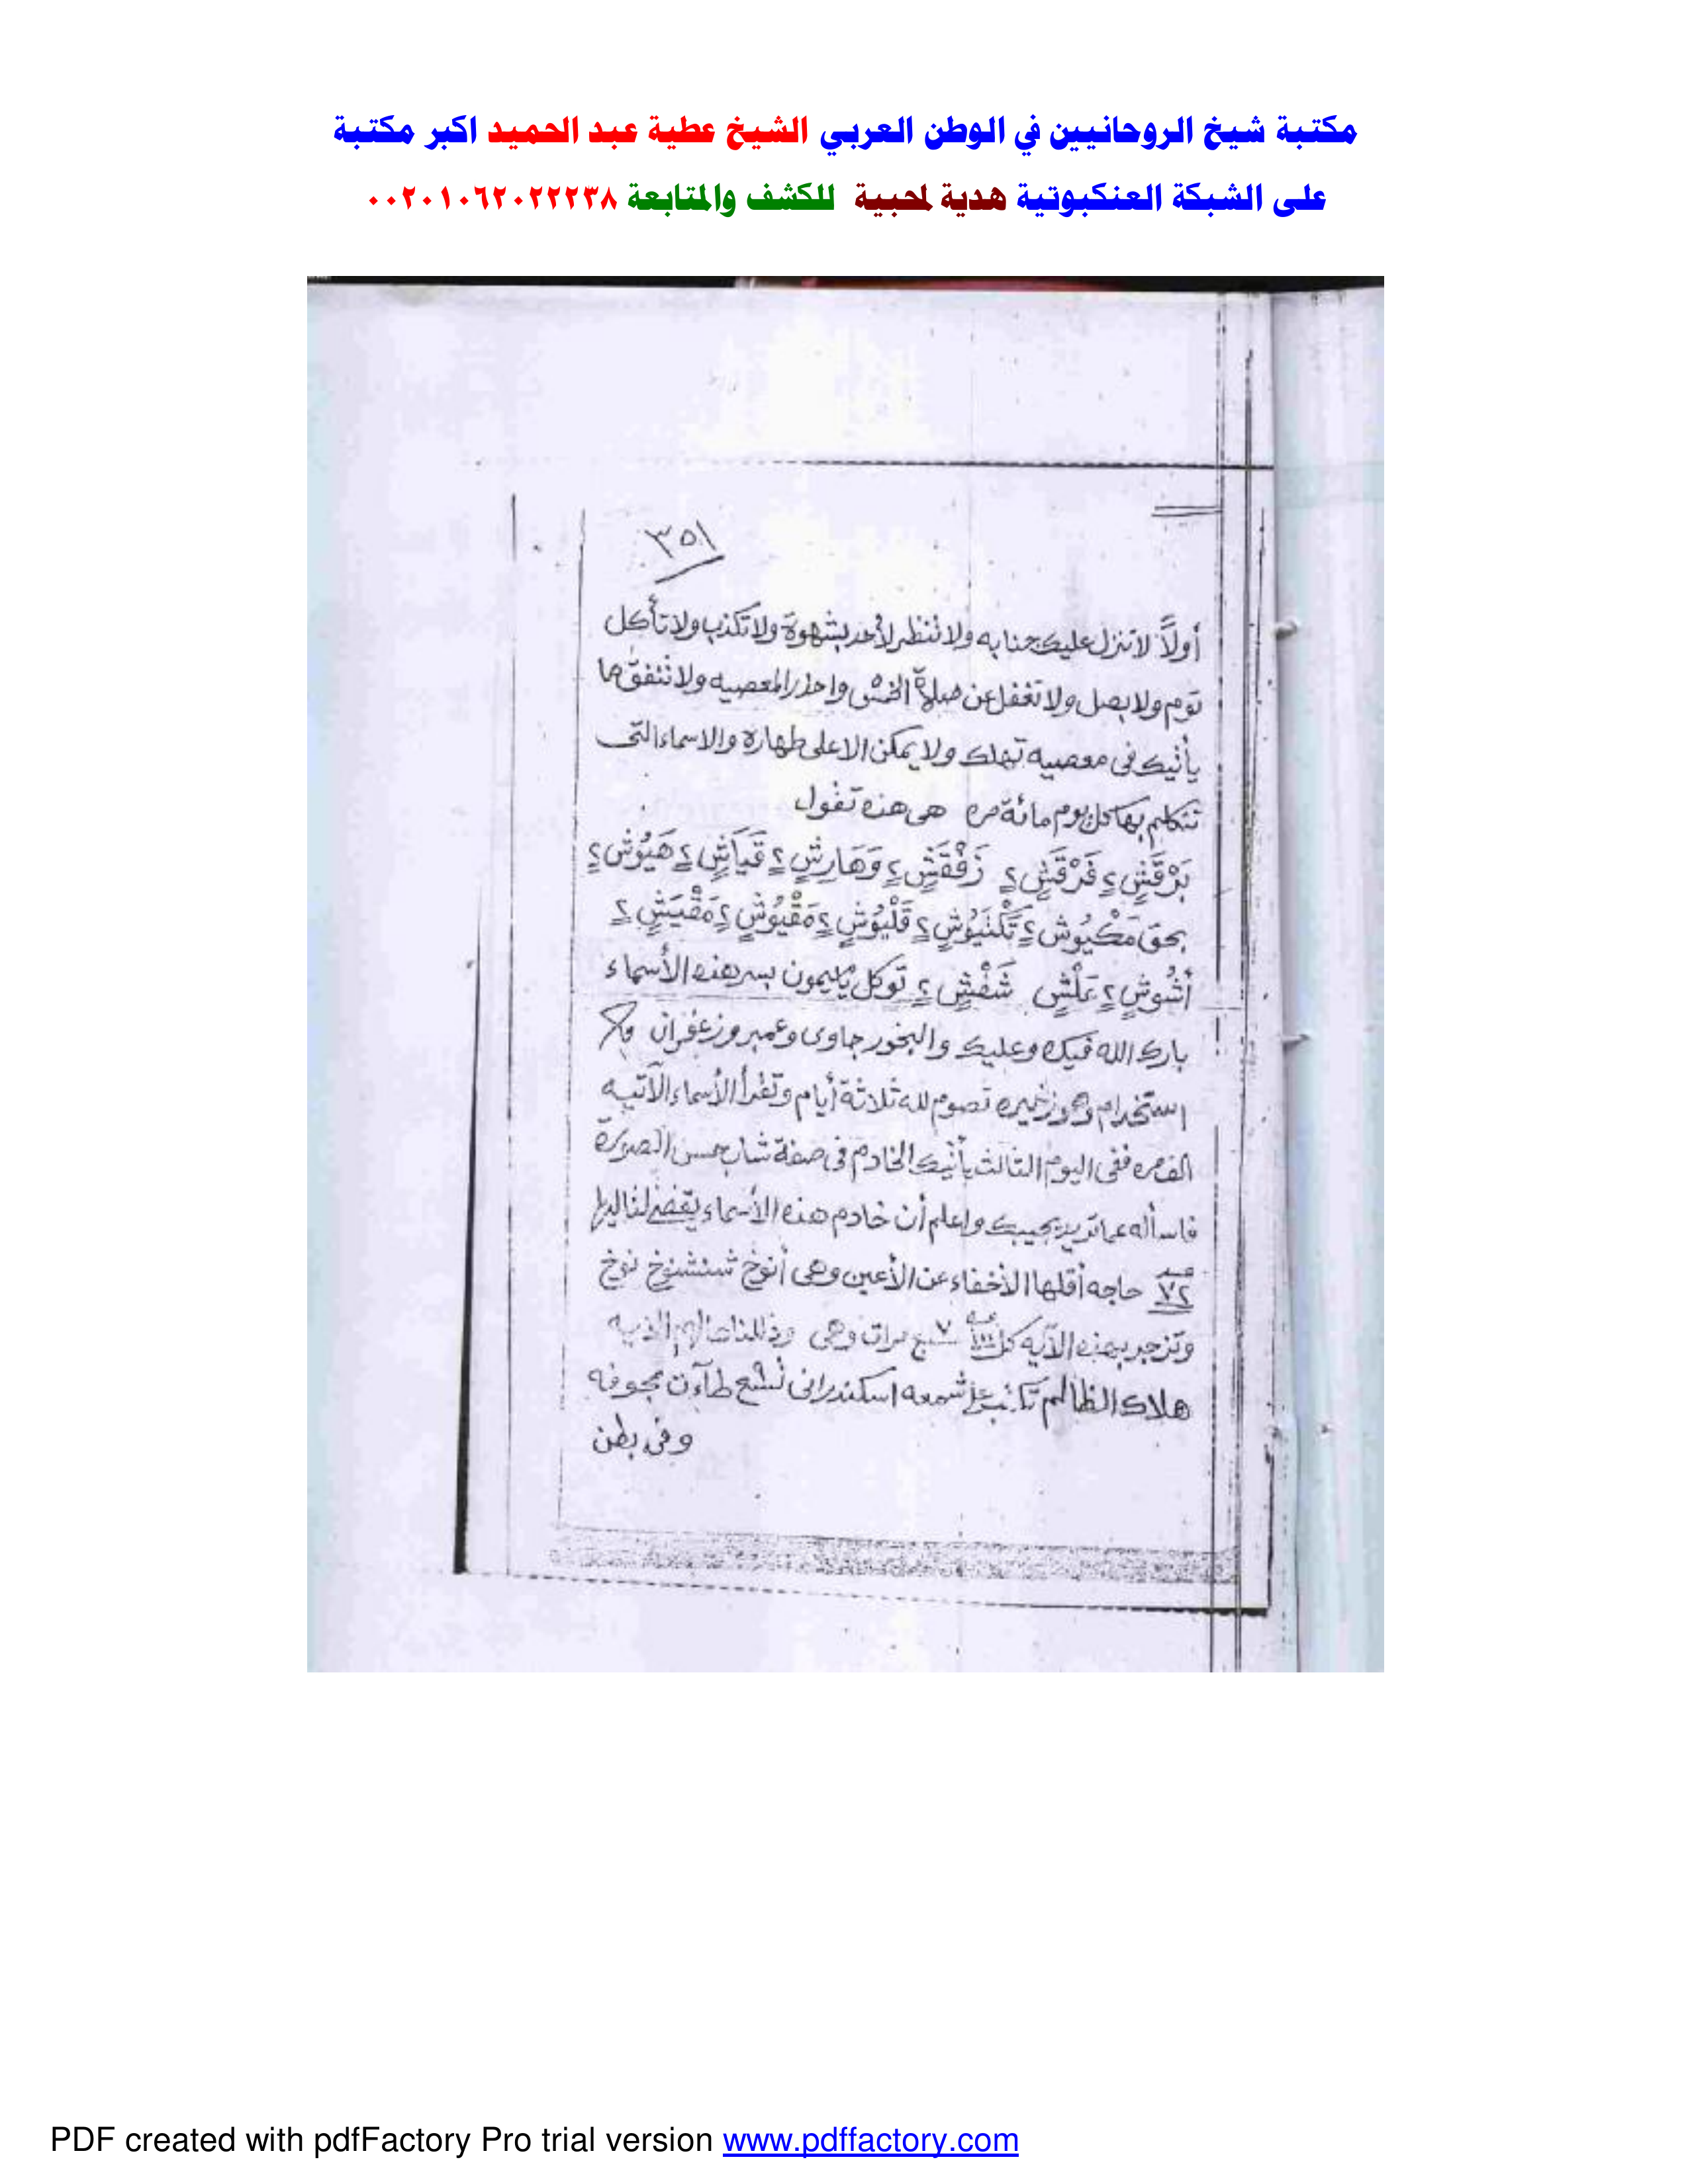 مكتبة شيخ الروحانيين في الوطن العربي الشيخ عطية عبد الحميد اكبر مكتبة
على الشبكة العنكبوتية هدية لمحبية للكشف والمتابعة ٠٠٢٠١٠٦٢٠٢٢٢٣٨
٣٥١
أولاً لا تنزل عليك جنابه ولا تنظر لأحد بشهوة ولا تكذب ولا تأكل
ثوم ولا بصل ولا تغفل عن صلاة الخمس واحذر المعصيه ولا تنفق مما
يأتيك فى معصيه تهلك ولا يمكن الا على طهارة والاسماء التى
تتكلم بها كل يوم مائة مره هى هذه تقول
بَرْقَشٍ ٢ فَرْقَشٍ ٢ زَقْفَشٍ ٢ وَهَارِشٍ ٢ قَيَاشٍ ٢ هَيُوش ٢
بحق مَكْيُوش ٢ تَكْنَيُوشٍ ٢ قَلْيُوشٍ ٢ مَقْيُوشٍ ٢ مَقْيَشٍ ٢
أشُوشٍ ٢ عَلْشٍ شَفْشٍ ٢ توكل يا ميمون بسر هذه الأسماء
بارك الله فيك وعليك والبخور جاوى وعمبر وزعفران
استخدام تصوم لله ثلاثة أيام وتقرأ الأسماء الآتيه
الف مره ففى اليوم الثالث يأتيك الخادم فى صفة شاب حسن الصورة
فاسأله عما تريد يجيبك واعلم أن خادم هذه الأسماء يقضى لتاليها
٧٢ حاجه أقلها الأخفاء عن الأعين وهى أنوخ شنشنوخ نوخ
وتزجر بهذه الآيه كل ١٠٠ ٧ سبع مرات وهى وذللناها لهم الآيه
هلاك الظالم تكتب على شمعه اسكندرانى تسع طاآت مجوفه
وفى بطن
PDF created with pdfFactory Pro trial version www.pdffactory.com